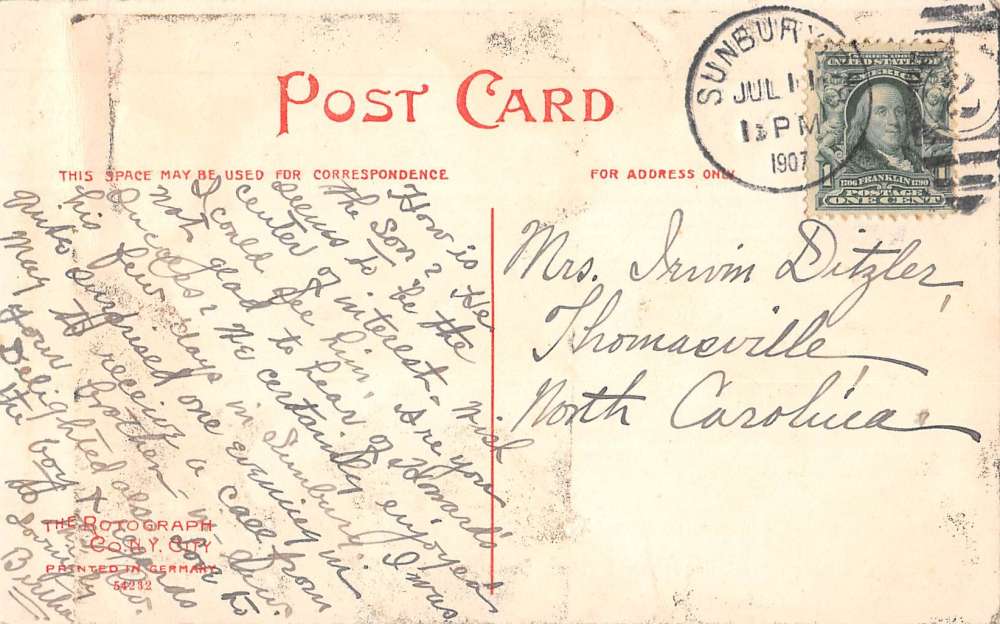 POST CARD
THIS SPACE MAY BE USED FOR CORRESPONDENCE
FOR ADDRESS ONLY
SUNBURY
JUL 11
PM
1907
SERIES 1902
UNITED STATES OF
AMERICA
1706 FRANKLIN 1790
POSTAGE
1
ONE CENT
How is
the Son? He
seems to be the
center of interest. Wish
I could see him. Are you
not glad to hear of Howard's
success? He certainly enjoyed
his few days in Sunbury. I was
quite surprised one evening in
May to receive a call from
your brother.
Delighted also
the boy &
to
THE ROTOGRAPH
CO. N.Y. CITY
PRINTED IN GERMANY
54232
Mrs. Irvin Ditzler,
Thomasville
North Carolina